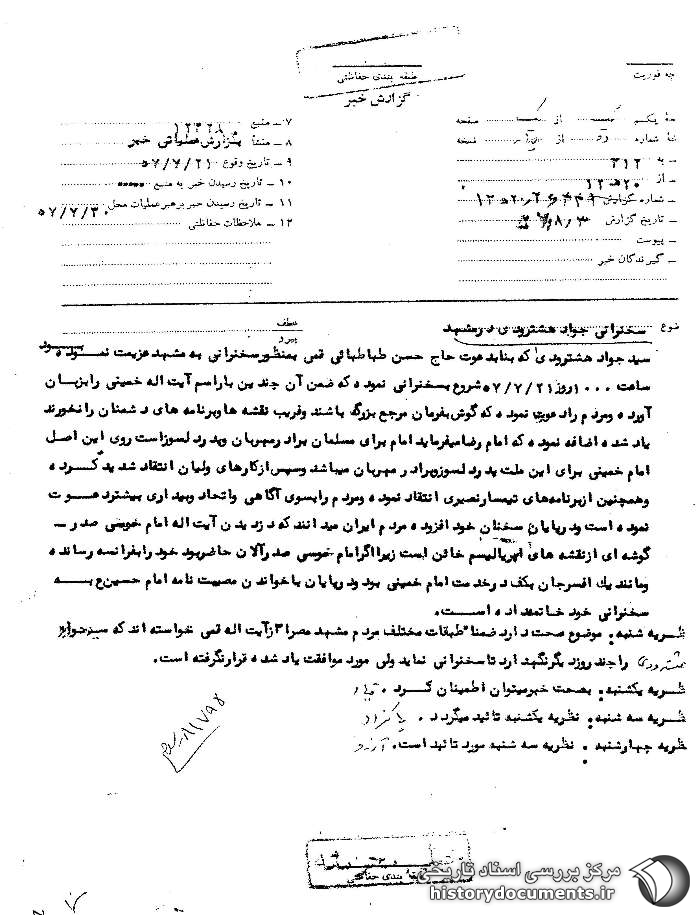 طبقه بندی حفاظتی
گزارش خبر
چه فوریت
از صفحه
شماره از نسخه
ـ به ۳۱۲
ـ از
ـ شماره گزارش
ـ تاریخ گزارش
ـ پیوست
ـ گیرندگان خبر
۷ ـ منبع
۸ ـ منشأ گزارش عملیاتی خبر
۹ ـ تاریخ وقوع ۵۷/۷/۲۱
۱۰ ـ تاریخ رسیدن خبر به منبع
۱۱ ـ تاریخ رسیدن خبر برهبر عملیات محل ۵۷/۷/۳۰
۱۲ ـ ملاحظات حفاظتی
سخنرانی جواد هشترودی در مشهد
عطف
پیرو
سید جواد هشترودی که بنابدعوت حاج حسن طباطبائی قمی بمنظور سخنرانی به مشهد عزیمت نموده بود
ساعت ۱۰۰۰ روز ۵۷/۷/۲۱ شروع بسخنرانی نموده که ضمن آن چندین بار اسم آیت اله خمینی را بزبان
آورده و مردم را دعوت نموده که گوش بفرمان مرجع بزرگ باشند و فریب نقشه ها و برنامه های دشمنان را نخورند
یاد شده اضافه نموده که امام رضا میفرماید امام برای مسلمان برادر و مهربان و پدر دلسوز است روی این اصل
امام خمینی برای این ملت پدر دلسوز و برادر مهربان میباشد و سپس از کارهای ولیان انتقاد شدید کرده
و همچنین از برنامه های تیمسار نصیری انتقاد نموده و مردم را بسوی آگاهی و اتحاد و بیداری بیشتر دعوت
نموده است و در پایان سخنان خود افزوده مردم ایران میدانند که دزدیدن آیت اله امام موسی صدر ـ
گوشه ای از نقشه های امپریالیسم خائن است زیرا اگر امام موسی صدر آلان حاضر بود خود را بفرانسه رسانده
و مانند یک افسر جان بکف در خدمت امام خمینی بود و در پایان با خواندن مصیبت نامه امام حسین ع به
سخنرانی خود خاتمه داده است.
نظریه شنبه. موضوع صحت دارد ضمنا طبقات مختلف مردم مشهد مصرا از آیت اله قمی خواسته اند که سید جواد
هشترودی را چند روز دیگر نگهدارد تا سخنرانی نماید ولی مورد موافقت یاد شده قرار نگرفته است.
نظریه یکشنبه. بصحت خبر میتوان اطمینان کرد.
نظریه سه شنبه. نظریه یکشنبه تائید میگردد. پاکزاد
نظریه چهارشنبه. نظریه سه شنبه مورد تائید است. آرزو
بندی حفاظتی
مرکز بررسی اسناد تاریخی
historydocuments.ir